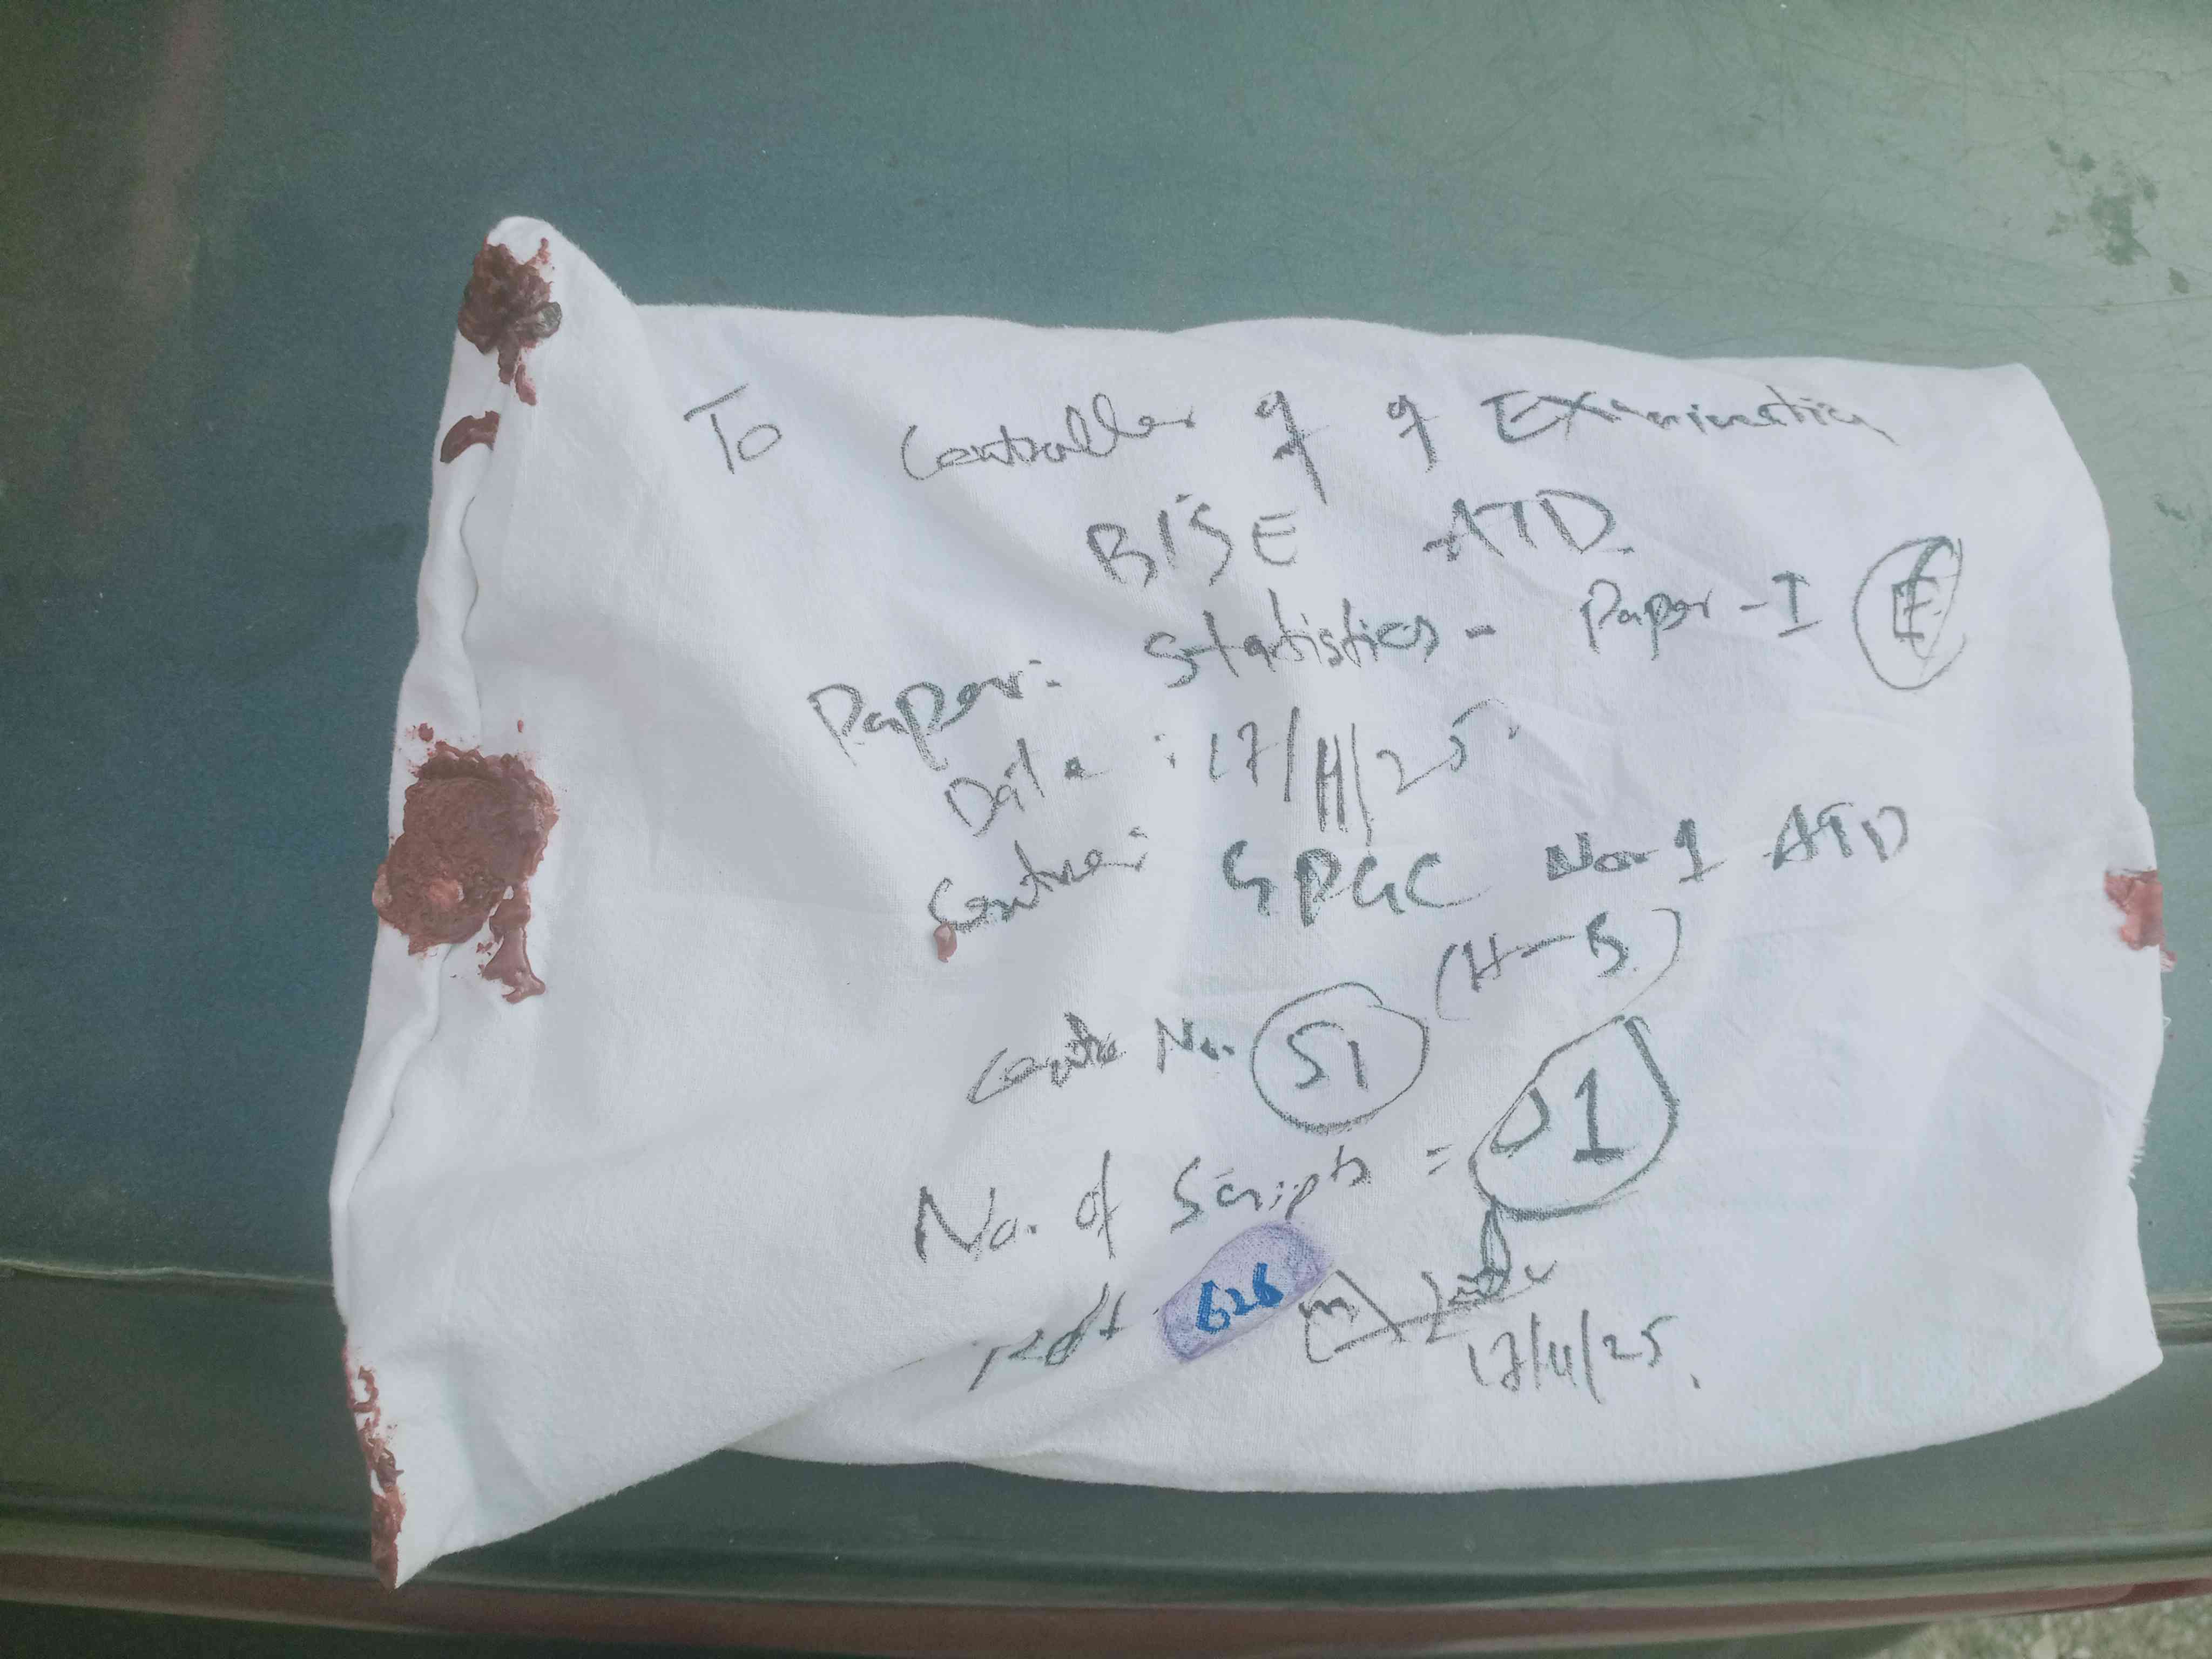 To Controller of of Examination
BISE ATD
Paper: Statistics - Paper-I E
Date : 17/11/25
Centre: GPGC No-1 ATD
(H-B)
Centre No. 51
No. of Scripts = 01
626
17/11/25.